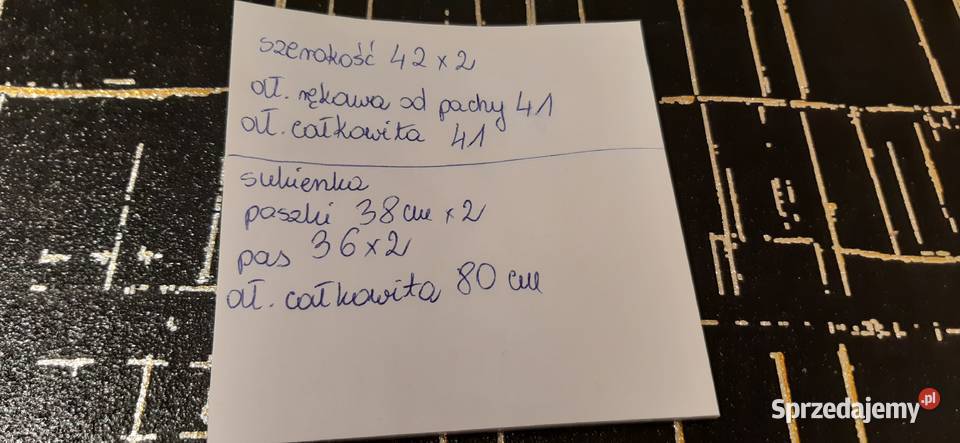 szerokość 42 x 2
dł. rękawa od pachy 41
dł. całkowita 41
sukienka
paszki 38 cm x 2
pas 36 x 2
dł. całkowita 80 cm
Sprzedajemy.pl